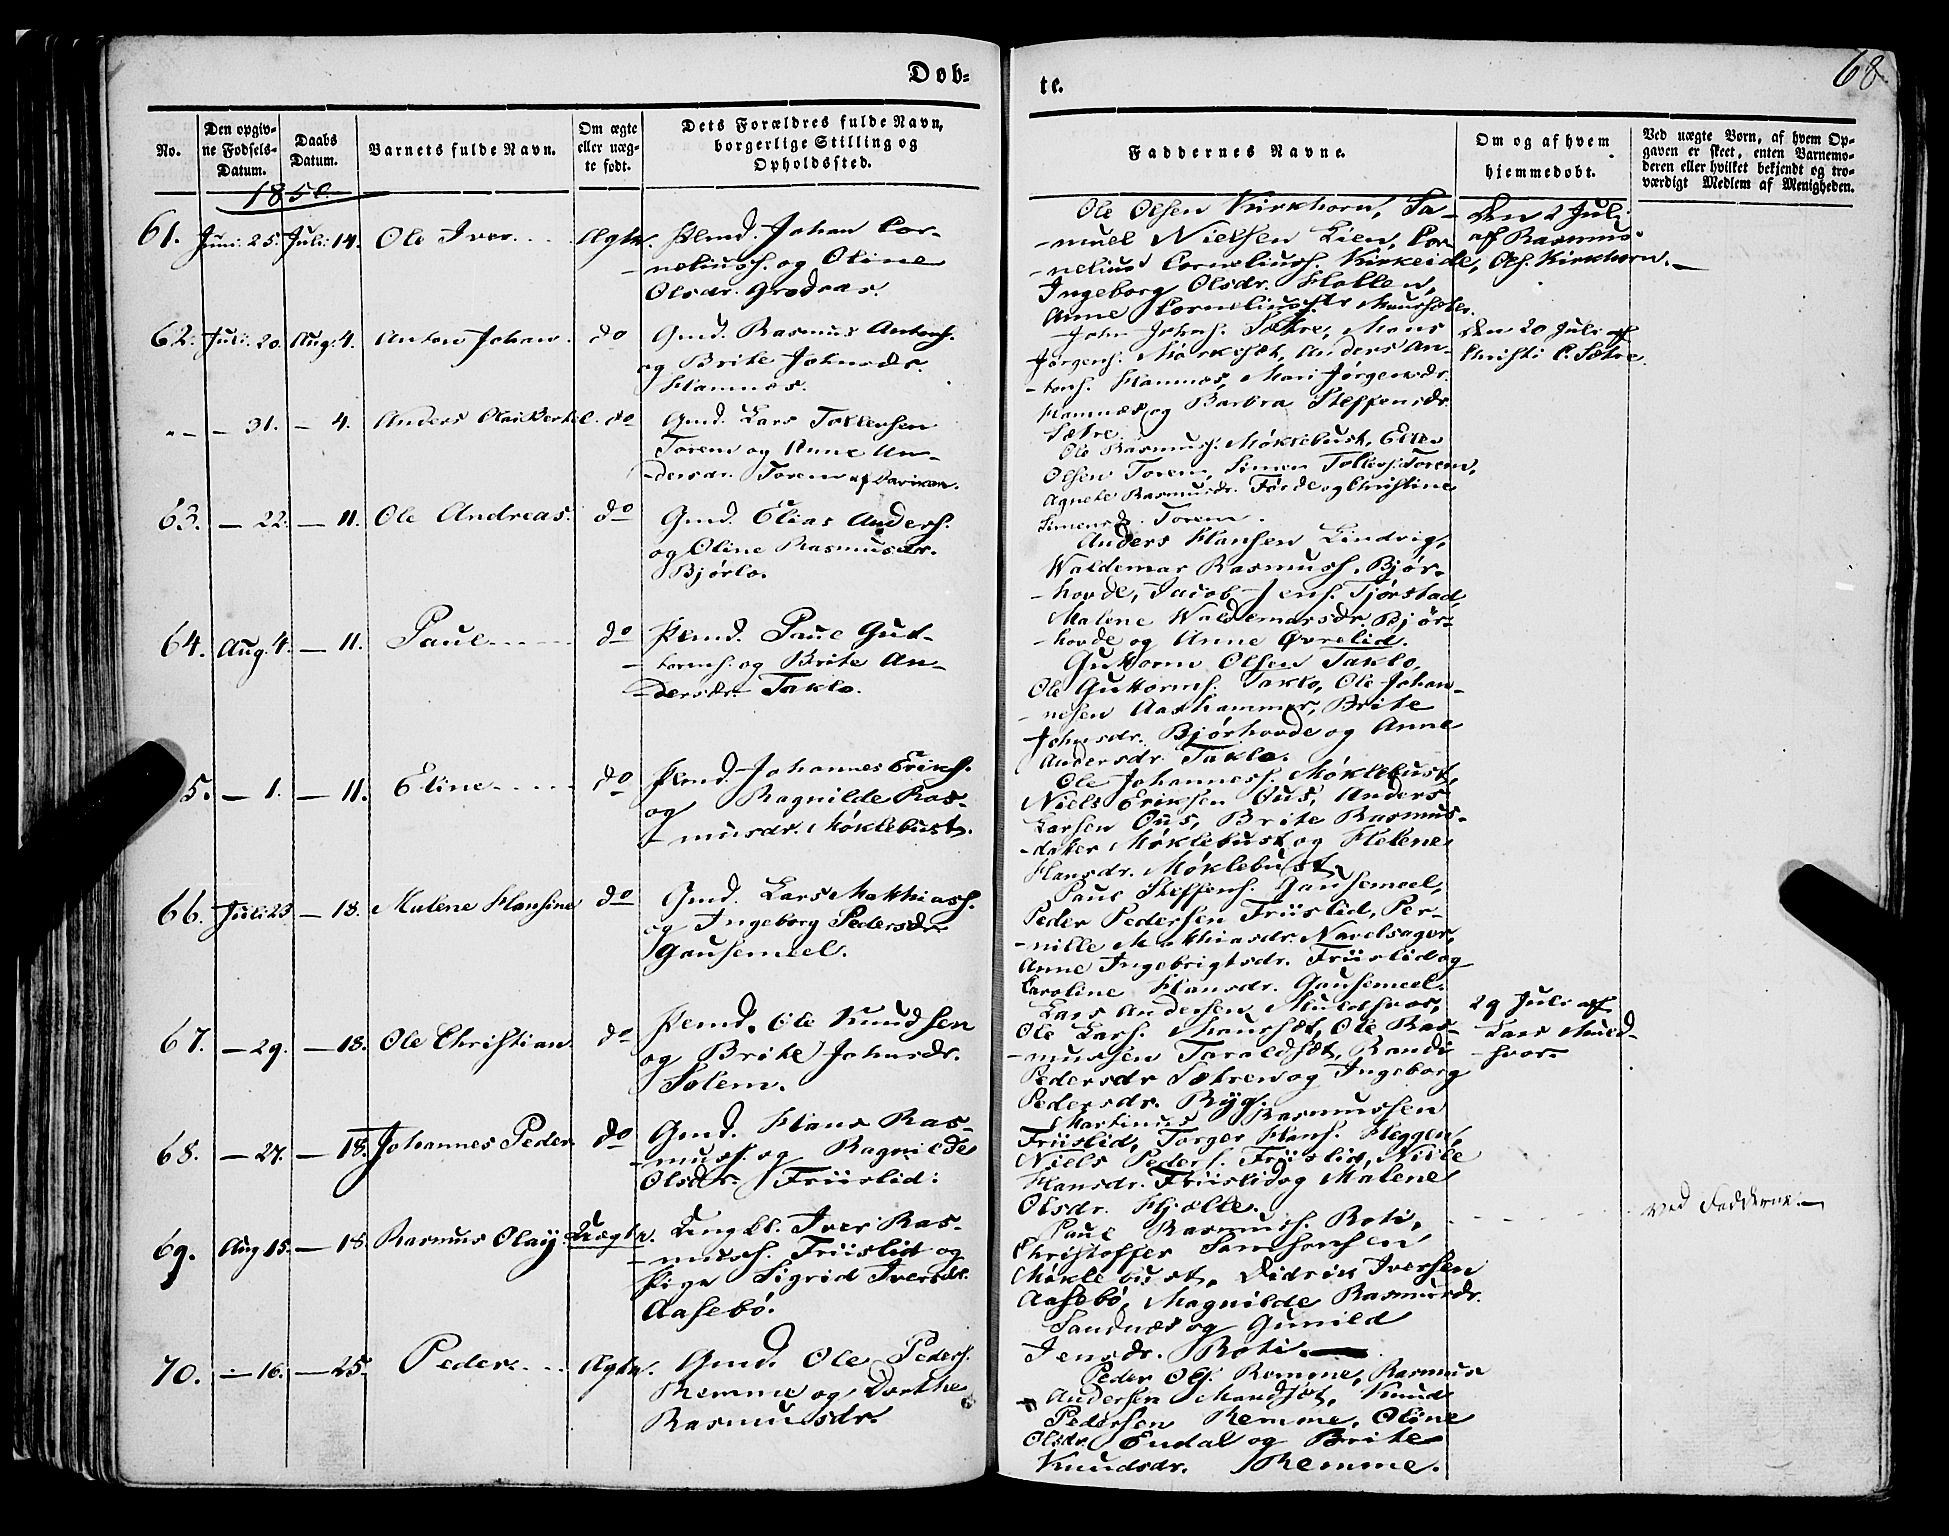 Døb-
te.
68.
No.
Den opgiv-
ne Fødsels-
Datum.
Daabs
Datum.
Barnets fulde Navn.
Om ægte
eller uæg-
te født.
Dets Forældres fulde Navn,
borgerlige Stilling og
Opholdssted.
Faddernes Navne.
Om og af hvem
hjemmedøbt.
Ved uægte Børn, af hvem Op-
gaven er skeet, enten Barnemo-
deren eller hvilket bekjendt og tro-
værdigt Medlem af Menigheden.
1850.
61. Juni 25. Juli 14. Ole Iver Ægte. Plmd. Johan Cor-
neliuss. og Oline
Olsdr. Grodaas.
Ole Olsen Kirkhorn, Sa-
muel Nielsen Lien, Cor
nelius Corneliuss. Kirkeide,
Ingeborg Olsdr. Hollen,
Anne Corneliusdr. Maurset.
Den 2 Juli
af Rasmus
Ols. Kirkhorn.
62. Juli 20. Aug. 4. Anton Johan. do Gmd. Rasmus Antons.
og Brite Johnsdr.
Hamnæs.
John Johns. Sætre, Mons
Jørgens. Mørkesæt, Anders An-
tons. Hamnæs, Mari Jørgensdr.
Hamnæs og Barbra Steffensdr.
Sætre.
Den 20 Juli af
Christi C. Sætre.
- 31. - 4. Anders Olai Bertel. do Gmd. Lars Tollevsen
Torem og Anne An-
dersdr. Torem af Daviken.
Ole Rasmuss. Møklebust, Elias
Olsen Torem, Simen Tollevs. Torem,
Agnete Rasmusdr. Førde og Christine
Simensdr. Torem.
63. - 22. - 11. Ole Andreas. do Gmd. Elias Anders.
og Oline Rasmusdr.
Bjørlo.
Anders Hansen Lindvig,
Waldemar Rasmuss. Bjør-
hovde, Jacob Jens. Tjørstad,
Malene Waldemarsdr. Bjør-
hovde og Anne Øvrelid.
64. Aug. 4. - 11. Paul do Plmd. Paul Gut-
torms. og Brite An-
dersdr. Taklo.
Guttorm Olsen Taklo,
Ole Guttorms. Taklo, Ole Johan-
nesen Aashammer, Brite
Johnsdr. Bjørhovde og Anne
Andersdr. Taklo.
5. - 1. - 11. Eline do Plmd. Johannes Eriks.
og Ragnilde Ras-
musdr. Møklebust.
Ole Johanness. Møklebust,
Niels Eriksen Ous, Anders
Larsen Ous, Brite Rasmus-
datter Møklebust og Helene
Hansdr. Møklebust.
66. Juli 23 - 18. Malene Hansine do Gmd. Lars Matthiass.
og Ingeborg Pedersdr.
Gausemeel.
Paul Steffens. Gausemeel,
Peder Pedersen Friislid, Per-
nille Matthiasdr. Navelsager,
Anne Ingebrigtsdr. Friislid og
Caroline Hansdr. Gausemeel.
67. - 29. - 18. Ole Christian. do Plmd. Ole Knudsen
og Brite Johnsdr.
Solem.
Lars Andersen Muldsvor,
Ole Lars. Maursæt, Ole Ras-
mussen Taraldsæt, Randi
Pedersdr Sætren og Ingeborg
Pedersdr. Ryg.
29 Juli af
Lars Muld-
svor.
68. - 27. - 18. Johannes Peder. do Gmd. Hans Ras-
muss. og Ragnilde
Olsdr. Friislid.
Martinus Rasmussen
Friislid, Torger Hans. Heggen,
Niels Peders. Friislid, Nille
Hansdr. Friislid og Malene
Olsdr. Hjelle.
69. Aug 15. - 18. Rasmus Olay. Uægte. Ungkl. Iver Ras-
muss. Friislid og
Pige Sigrid Iversdr.
Aasebø.
Paul Rasmuss. Roti,
Christoffer Samsonsen
Møklebust, Didrik Iversen
Aasebø, Magnilde Rasmusdr.
Sandnæs og Gunild
Jensdr. Roti.
ved Fadderne.
70. - 16. - 25. Peder Ægte. Gmd. Ole Peders.
Remme og Dorthe
Rasmusdr.
Peder Ols. Remme, Rasmus
Andersen Mandsæt, Knud
Pedersen Remme, Oline
Olsdr. Endal og Brite
Knudsdr. Remme.